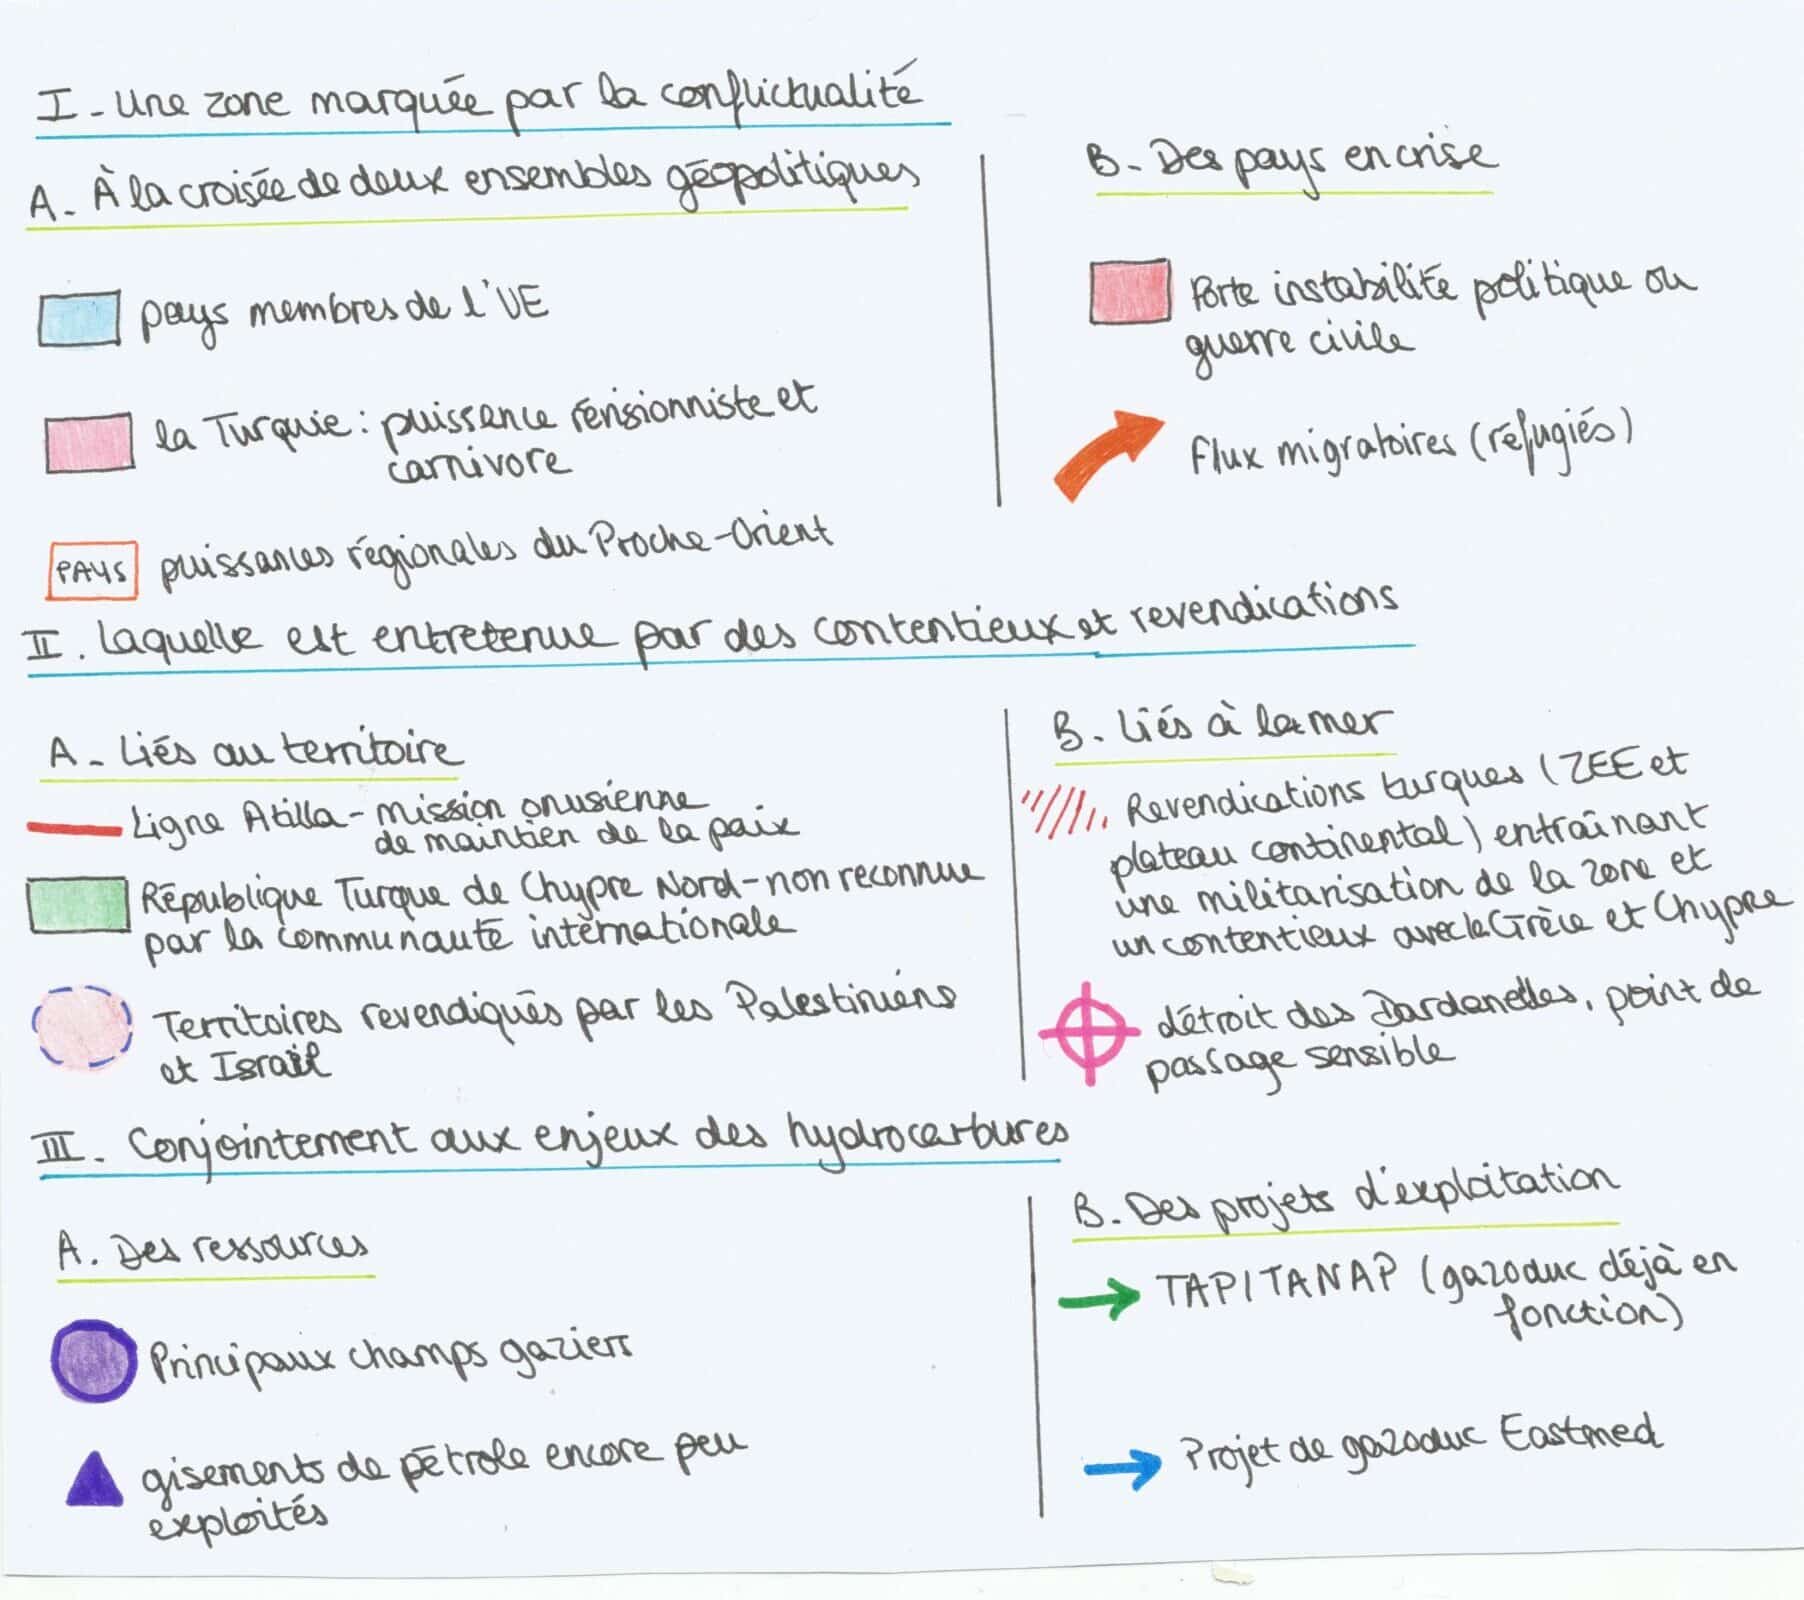 I - Une zone marquée par la conflictualité
A. À la croisée de deux ensembles géopolitiques
pays membres de l'UE
la Turquie : puissence révisionniste et
carnivore
PAYS puissances régionales du Proche-Orient
B - Des pays en crise
Forte instabilité politique ou
guerre civile
Flux migratoires (réfugiés)
II. Laquelle est entretenue par des contentieux et revendications
A - Liés au territoire
Ligne Atilla - mission onusienne
de maintien de la paix
République Turque de Chypre Nord - non reconnue
par la communauté internationale
Territoires revendiqués par les Palestiniens
et Israël
B. Liés à la mer
Revendications turques (ZEE et
plateau continental) entraînant
une militarisation de la zone et
un contentieux avec la Grèce et Chypre
détroit des Dardanelles, point de
passage sensible
III. Conjointement aux enjeux des hydrocarbures
A. Des ressources
Principaux champs gaziers
gisements de pétrole encore peu
exploités
B. Des projets d'exploitation
TAP/TANAP (gazoduc déjà en
fonction)
Projet de gazoduc Eastmed